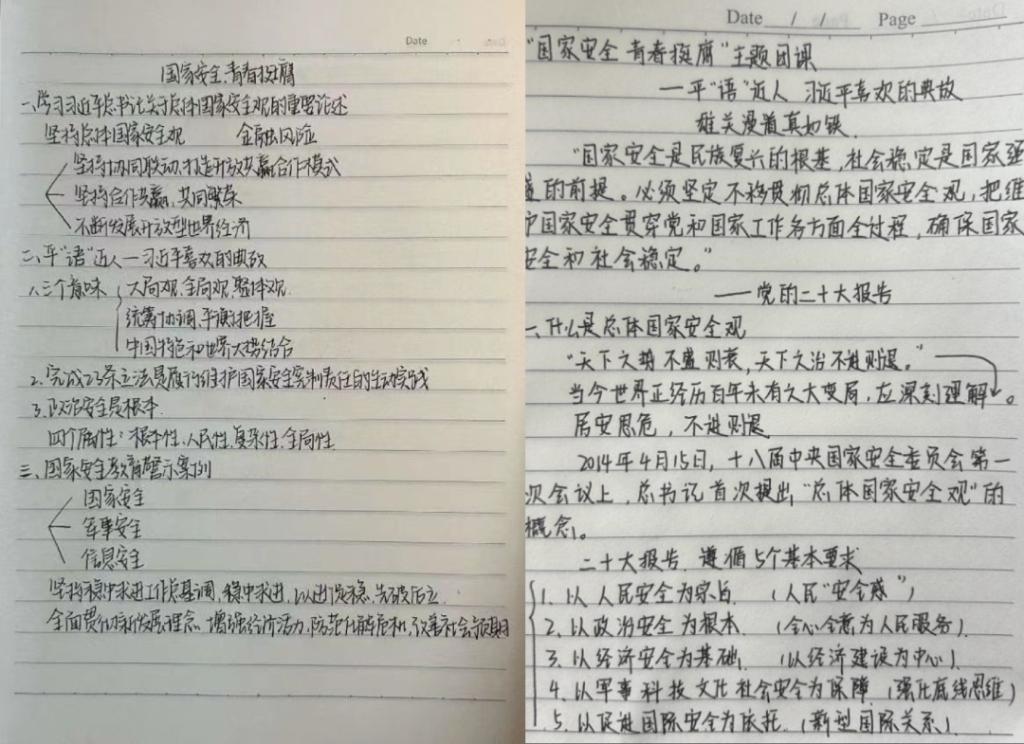 Date
国家安全 青春挺膺
一、学习习近平总书记关于总体国家安全观的重要论述
坚持总体国家安全观 金融风险
坚持协同联动,打造开放共赢合作模式
坚持合作共赢,共同繁荣
不断发展开放型世界经济
二、平"语"近人—习近平喜欢的典故
1.三个意味
大局观,全局观,整体观
统筹协调,平衡把握
中国特色和世界大势结合
2.完成23条立法是履行维护国家安全宪制责任的生动实践
3.政治安全是根本
四个属性:根本性,人民性,复杂性,全局性
三、国家安全教育警示案例
国家安全
军事安全
信息安全
坚持稳中求进工作总基调,稳中求进,以进促稳,先破后立
全面贯彻新发展理念,增强经济活力,防范化解危机,改善社会预期
Date / / Page
"国家安全 青春挺膺"主题团课
—平"语"近人 习近平喜欢的典故
雄关漫道真如铁
"国家安全是民族复兴的根基,社会稳定是国家强
盛的前提。必须坚定不移贯彻总体国家安全观,把维
护国家安全贯穿党和国家工作各方面全过程,确保国家
安全和社会稳定。"
——党的二十大报告
一、什么是总体国家安全观
"天下之势不盛则衰,天下之治不进则退。"
当今世界正经历百年未有之大变局,应深刻理解。
居安思危,不进则退
2014年4月15日,十八届中央国家安全委员会第一
次会议上,总书记首次提出"总体国家安全观"的
概念。
二十大报告 遵循5个基本要求
1.以人民安全为宗旨 (人民"安全感")
2.以政治安全为根本.(全心全意为人民服务).
3.以经济安全为基础.(以经济建设为中心).
4.以军事科技文化社会安全为保障(强化底线思维)
5.以促进国际安全为依托.(新型国际关系).